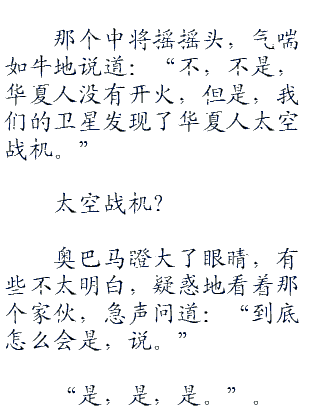 那个中将摇摇头，气喘
如牛地说道：“不，不是，
华夏人没有开火，但是，我
们的卫星发现了华夏人太空
战机。”
太空战机？
奥巴马瞪大了眼睛，有
些不太明白，疑惑地看着那
个家伙，急声问道：“到底
怎么会是，说。”
“是，是，是。”。